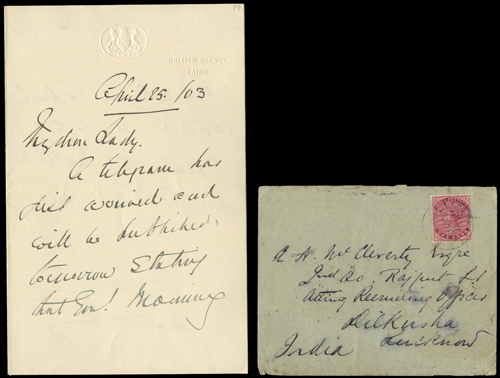 BRITISH AGENCY
CAIRO.
April 25. /03
My dear Lady.
A telegram has
just arrived and
will be published
tomorrow stating
that Genl. Manning
A H. Mc Cleverty Esqre
Rajput
Acting Recruiting Officer
Dilkusha
Lucknow
India